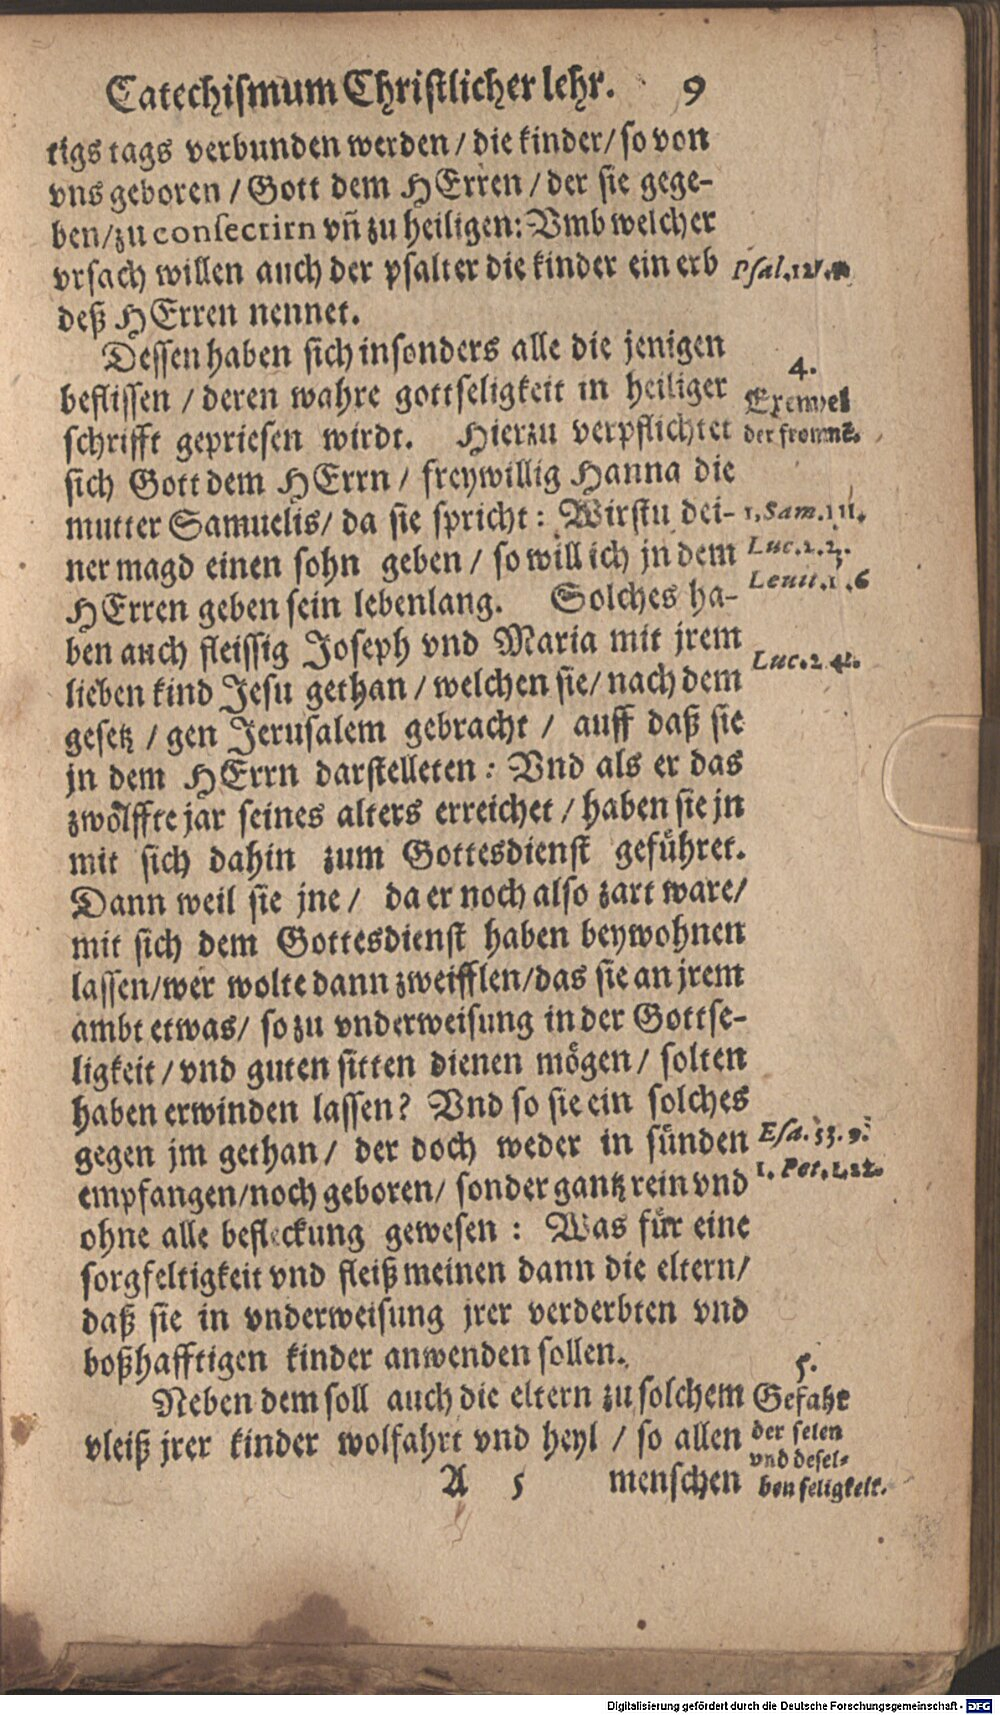 Catechismum Christlicher lehr. 9
tigs tags verbunden werden / die kinder / so von
vns geboren / Gott dem HErren / der sie gege-
ben / zu consecrirn vñ zu heiligen: Vmb welcher
vrsach willen auch der psalter die kinder ein erb
Psal.
deß HErren nennet.
Dessen haben sich insonders alle die jenigen
beflissen / deren wahre gottseligkeit in heiliger
4.
Exempel
der frommẽ.
schrifft gepriesen wirdt. Hierzu verpflichtet
sich Gott dem HErrn / freywillig Hanna die
mutter Samuelis / da sie spricht: Wirstu dei-
1. Sam. 1 11.
ner magd einen sohn geben / so will ich jn dem
Luc. 2. 23.
Leuit. 6
HErren geben sein lebenlang. Solches ha-
ben auch fleissig Joseph vnd Maria mit jrem
lieben kind Jesu gethan / welchen sie / nach dem
Luc. 2 42.
gesetz / gen Jerusalem gebracht / auff daß sie
jn dem HErrn darstelleten: Vnd als er das
zwölffte jar seines alters erreichet / haben sie jn
mit sich dahin zum Gottesdienst geführet.
Dann weil sie jne / da er noch also zart ware /
mit sich dem Gottesdienst haben beywohnen
lassen / wer wolte dann zweifflen / das sie an jrem
ambt etwas / so zu vnderweisung in der Gottse-
ligkeit / vnd guten sitten dienen mögen / solten
haben erwinden lassen? Vnd so sie ein solches
gegen jm gethan / der doch weder in sünden
Esa. 53. 9.
1. Pet. 2. 22.
empfangen / noch geboren / sonder gantz rein vnd
ohne alle befleckung gewesen: Was für eine
sorgfeltigkeit vnd fleiß meinen dann die eltern /
daß sie in vnderweisung jrer verderbten vnd
boßhafftigen kinder anwenden sollen.
Neben dem soll auch die eltern zu solchem
5.
Gefahr
der selen
vnd desel-
ben seligkeit.
vleiß jrer kinder wolfahrt vnd heyl / so allen
A 5 menschen
Digitalisierung gefördert durch die Deutsche Forschungsgemeinschaft - DFG